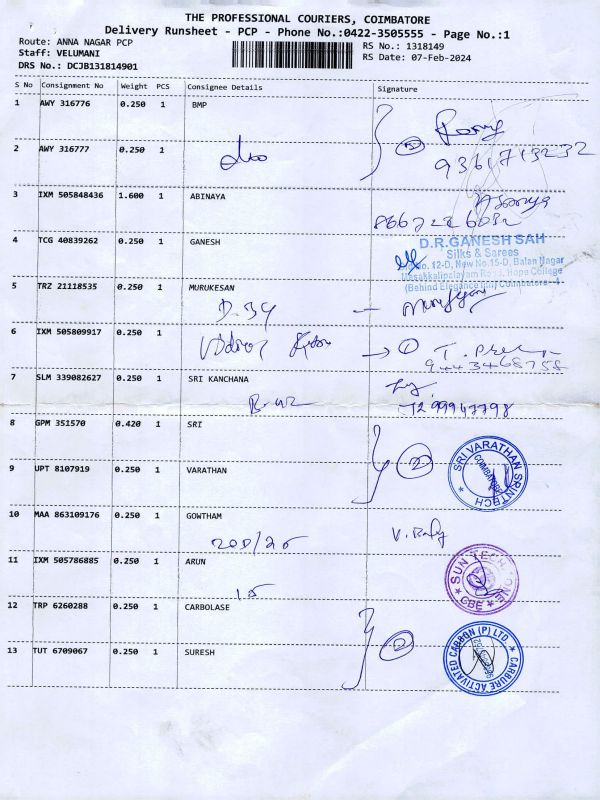 THE PROFESSIONAL COURIERS, COIMBATORE
Delivery Runsheet - PCP - Phone No.:0422-3505555 - Page No.:1
Route: ANNA NAGAR PCP
Staff: VELUMANI
DRS No.: DCJB131814901
RS No.: 1318149
RS Date: 07-Feb-2024
S No Consignment No Weight PCS Consignee Details Signature
1 AWY 316776 0.250 1 BMP
2 AWY 316777 0.250 1
9361713232
3 IXM 505848436 1.600 1 ABINAYA
4 TCG 40839262 0.250 1 GANESH
D.R.GANESH SAH
Silks & Sarees
No. 12-D, New No.15-D, Balan Nagar
Masakkalipalayam Road, Hope College
5 TRZ 21118535 0.250 1 MURUKESAN
D.34
6 IXM 505809917 0.250 1
9443468758
7 SLM 339082627 0.250 1 SRI KANCHANA
8 GPM 351570 0.420 1 SRI
2
SRI VARATHAN SRINTECH
COIMBATORE
9 UPT 8107919 0.250 1 VARATHAN
10 MAA 863109176 0.250 1 GOWTHAM
11 IXM 505786885 0.250 1 ARUN
15
CBE
12 TRP 6260288 0.250 1 CARBOLASE
2
CARBURE ACTIVATED CARBON (P) LTD.
13 TUT 6709067 0.250 1 SURESH